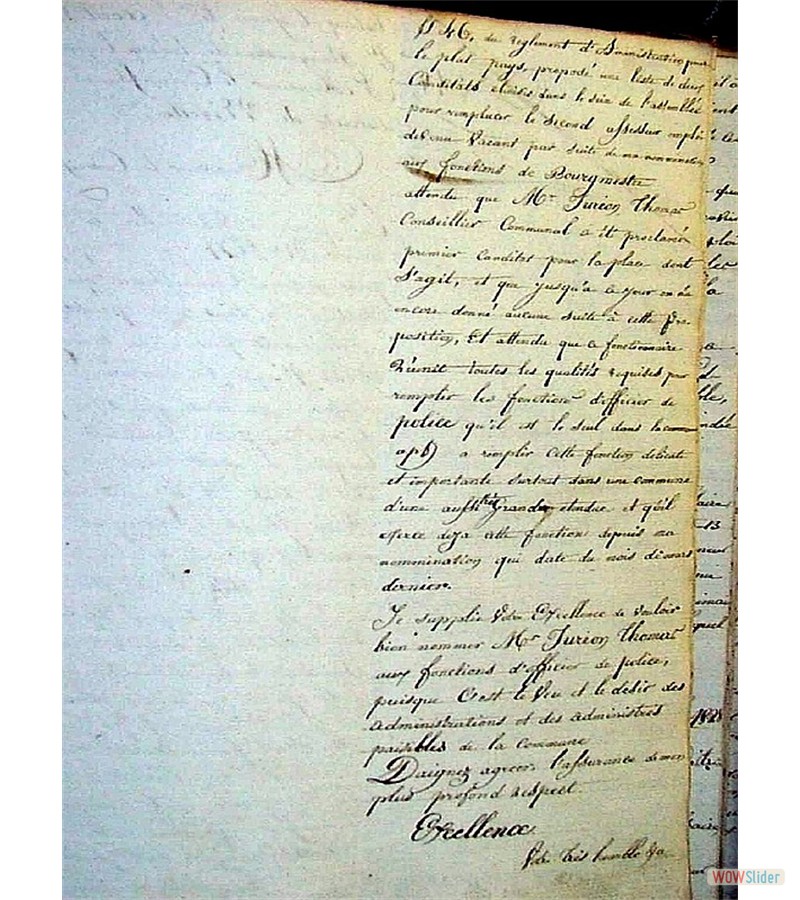 § 46, du reglement d'Administration pour
le plat pays, proposé une liste de deux
Canditats choisis dans le sein de l'assemblée
pour remplacer le second assesseur emploi
devenu Vacant par suite de ma nommination
aux fonctions de Bourgmestre
attendu que Mr Jurion Thomas
Conseillier Communal a été proclamé
premier canditat pour la place dont
S'agit, et que jusqu'a ce jour on n'a
encore donné aucune suite à cette Pro
position, Et attendu que ce fonctionnaire
Réunit toutes les qualités requises pour
remplir les fonctions d'officier de
police qu'il est le seul dans la commune
apte a remplir cette fonction délicate
et importante surtout dans une commune
d'une aussi très Grande etendue et qu'il
exerce deja cette fonctions depuis ma
nommination qui date du mois de mars
dernier.
Je supplie Votre Excellence de vouloir
bien nommer Mr Jurion Thomas
aux fonctions d'officier de police,
puisque C'est le Veu et le désir des
administrations et des administrés
paisibles de la commune
Daignez agréer l'assurance de mon
plus profond respect.
Excellence
Votre très humble
1828
WOWSlider